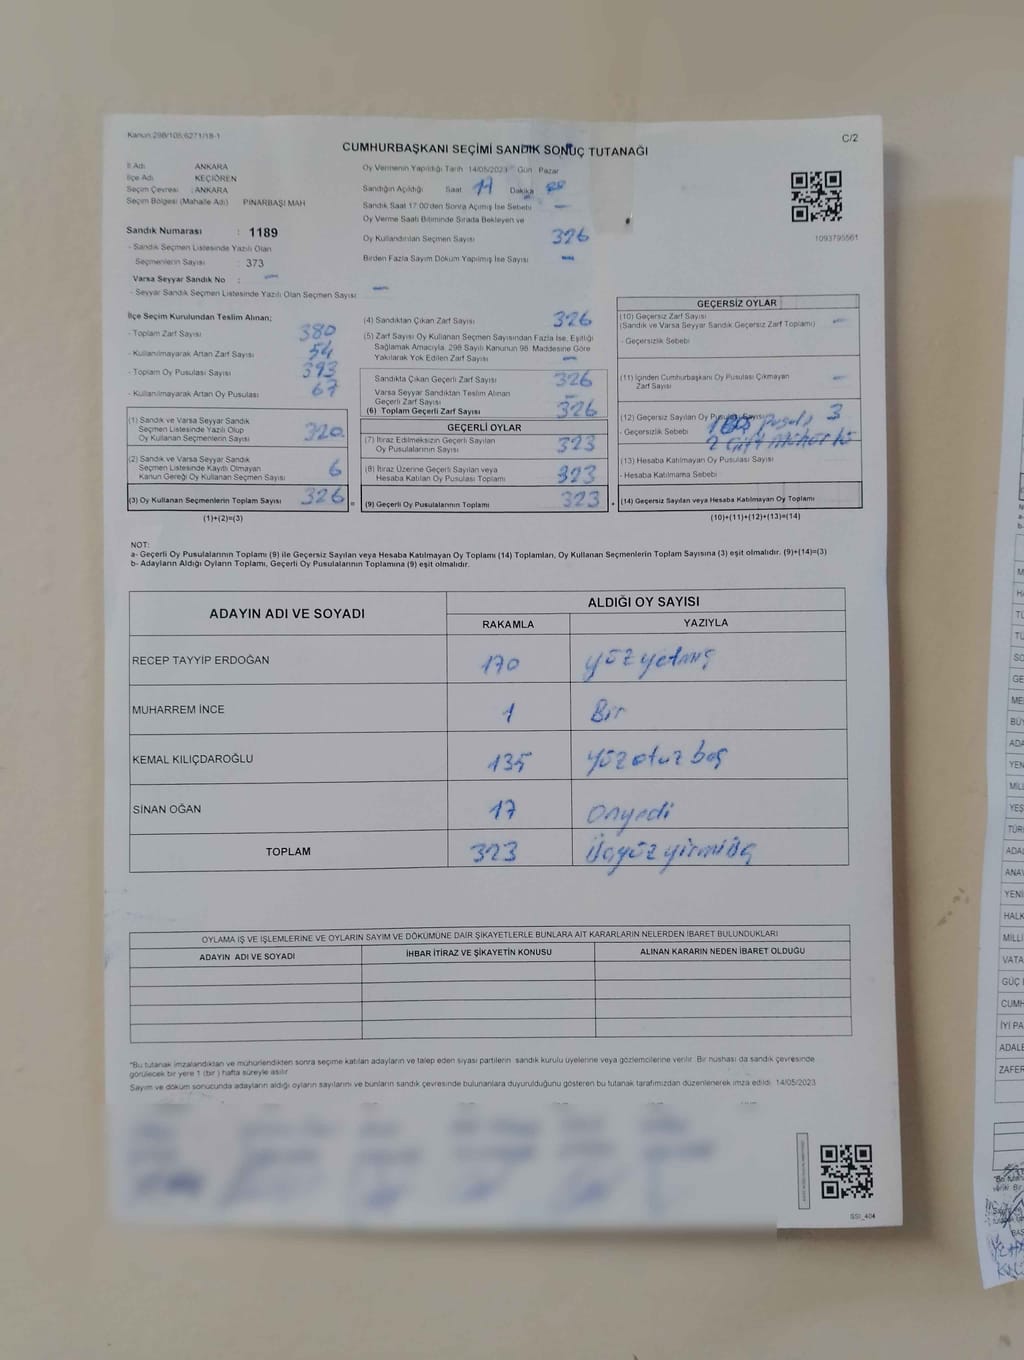 Kanun:298/105,6271/18-1
C/2
CUMHURBAŞKANI SEÇİMİ SANDIK SONUÇ TUTANAĞI
İl Adı ANKARA
İlçe Adı KEÇİÖREN
Seçim Çevresi : ANKARA
Seçim Bölgesi (Mahalle Adı) PINARBAŞI MAH
Sandık Numarası : 1189
- Sandık Seçmen Listesinde Yazılı Olan
Seçmenlerin Sayısı : 373
Varsa Seyyar Sandık No : —
- Seyyar Sandık Seçmen Listesinde Yazılı Olan Seçmen Sayısı —
Oy Vermenin Yapıldığı Tarih 14/05/2023 Gün Pazar
Sandığın Açıldığı Saat 17 Dakika
Sandık Saat 17:00'den Sonra Açılmış İse Sebebi —
Oy Verme Saati Bitiminde Sırada Bekleyen ve
Oy Kullandırılan Seçmen Sayısı 326
Birden Fazla Sayım Döküm Yapılmış İse Sayısı —
1093795561
İlçe Seçim Kurulundan Teslim Alınan;
- Toplam Zarf Sayısı 380
- Kullanılmayarak Artan Zarf Sayısı 54
- Toplam Oy Pusulası Sayısı 393
- Kullanılmayarak Artan Oy Pusulası 67
(1) Sandık ve Varsa Seyyar Sandık
Seçmen Listesinde Yazılı Olup
Oy Kullanan Seçmenlerin Sayısı 320
(2) Sandık ve Varsa Seyyar Sandık
Seçmen Listesinde Kayıtlı Olmayan
Kanun Gereği Oy Kullanan Seçmen Sayısı 6
(3) Oy Kullanan Seçmenlerin Toplam Sayısı 326 =
(1)+(2)=(3)
(4) Sandıktan Çıkan Zarf Sayısı 326
(5) Zarf Sayısı Oy Kullanan Seçmen Sayısından Fazla İse, Eşitliği
Sağlamak Amacıyla, 298 Sayılı Kanunun 98. Maddesine Göre
Yakılarak Yok Edilen Zarf Sayısı —
Sandıkta Çıkan Geçerli Zarf Sayısı 326
Varsa Seyyar Sandıktan Teslim Alınan
Geçerli Zarf Sayısı —
(6) Toplam Geçerli Zarf Sayısı 326
GEÇERLİ OYLAR
(7) İtiraz Edilmeksizin Geçerli Sayılan
Oy Pusulalarının Sayısı 323
(8) İtiraz Üzerine Geçerli Sayılan veya
Hesaba Katılan Oy Pusulası Toplamı 323
(9) Geçerli Oy Pusulalarının Toplamı 323 +
GEÇERSİZ OYLAR
(10) Geçersiz Zarf Sayısı —
(Sandık ve Varsa Seyyar Sandık Geçersiz Zarf Toplamı)
- Geçersizlik Sebebi
(11) İçinden Cumhurbaşkanı Oy Pusulası Çıkmayan —
Zarf Sayısı
(12) Geçersiz Sayılan Oy Pusulası Sayısı 3
- Geçersizlik Sebebi 1
2
(13) Hesaba Katılmayan Oy Pusulası Sayısı
- Hesaba Katılmama Sebebi
(14) Geçersiz Sayılan veya Hesaba Katılmayan Oy Toplamı
(10)+(11)+(12)+(13)=(14)
NOT:
a- Geçerli Oy Pusulalarının Toplamı (9) ile Geçersiz Sayılan veya Hesaba Katılmayan Oy Toplamı (14) Toplamları, Oy Kullanan Seçmenlerin Toplam Sayısına (3) eşit olmalıdır. (9)+(14)=(3)
b- Adayların Aldığı Oyların Toplamı, Geçerli Oy Pusulalarının Toplamına (9) eşit olmalıdır.
ADAYIN ADI VE SOYADI
ALDIĞI OY SAYISI
RAKAMLA YAZIYLA
RECEP TAYYİP ERDOĞAN 170 yüzyetmiş
MUHARREM İNCE 1 Bir
KEMAL KILIÇDAROĞLU 135 yüzotuz beş
SİNAN OĞAN 17 onyedi
TOPLAM 323 Üçyüzyirmiüç
OYLAMA İŞ VE İŞLEMLERİNE VE OYLARIN SAYIM VE DÖKÜMÜNE DAİR ŞİKAYETLERLE BUNLARA AİT KARARLARIN NELERDEN İBARET BULUNDUKLARI
ADAYIN ADI VE SOYADI İHBAR İTİRAZ VE ŞİKAYETİN KONUSU ALINAN KARARIN NEDEN İBARET OLDUĞU
*Bu tutanak imzalandıktan ve mühürlendikten sonra seçime katılan adayların ve talep eden siyasi partilerin sandık kurulu üyelerine veya gözlemcilerine verilir. Bir nüshası da sandık çevresinde
görülecek bir yere 1 (bir) hafta süreyle asılır.
Sayım ve döküm sonucunda adayların aldığı oyların sayılarını ve bunların sandık çevresinde bulunanlara duyurulduğunu gösteren bu tutanak tarafımızdan düzenlenerek imza edildi. 14/05/2023
SSI_404